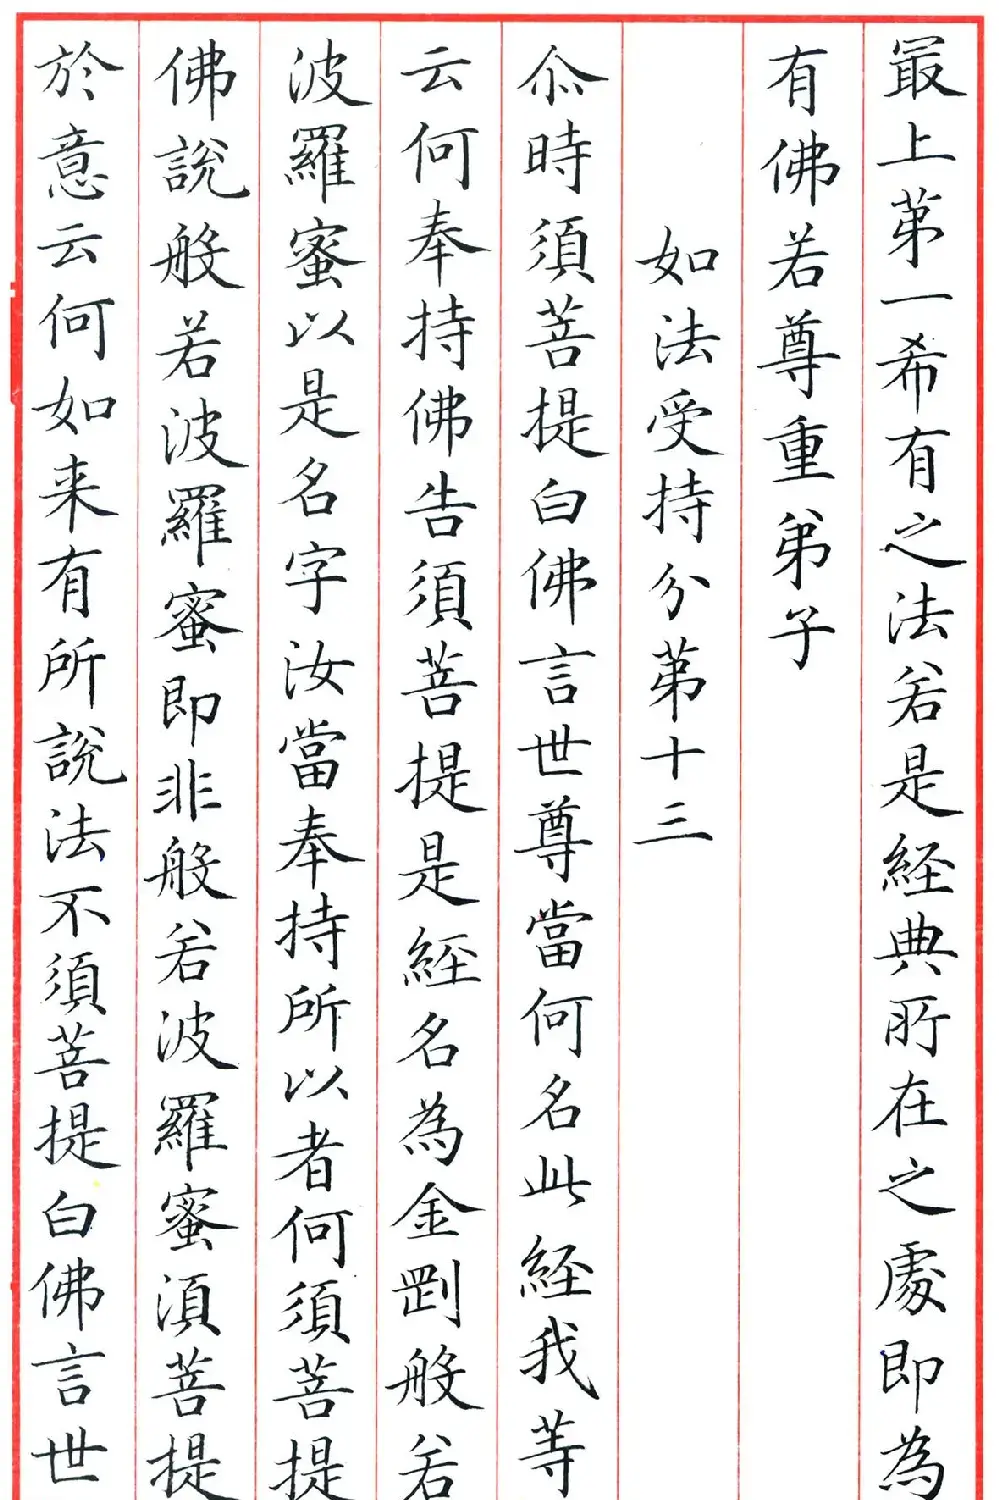 最上第一希有之法若是經典所在之處即為
有佛若尊重弟子
如法受持分第十三
尒時須菩提白佛言世尊當何名此經我等
云何奉持佛告須菩提是經名為金剛般若
波羅蜜以是名字汝當奉持所以者何須菩提
佛說般若波羅蜜即非般若波羅蜜須菩提
於意云何如来有所說法不須菩提白佛言世